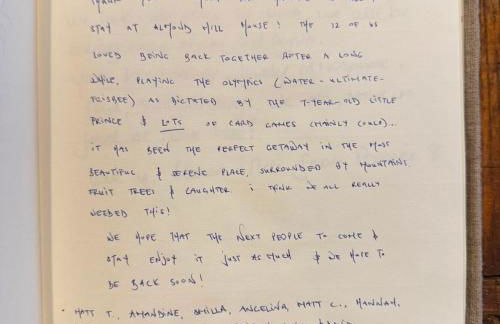 STAY AT ALMOND HILL HOUSE! THE 12 OF US
LOVED BEING BACK TOGETHER AFTER A LONG
WHILE, PLAYING THE OLYMPICS (WATER-ULTIMATE-
FRISBEE) AS DICTATED BY THE 7-YEAR-OLD LITTLE
PRINCE & LOTS OF CARD GAMES (MAINLY (OULD)...
IT HAS BEEN THE PERFECT GETAWAY IN THE MOST
BEAUTIFUL & SERENE PLACE, SURROUNDED BY MOUNTAINS
FRUIT TREES & LAUGHTER. I THINK WE ALL REALLY
NEEDED THIS!
WE HOPE THAT THE NEXT PEOPLE TO COME &
STAY ENJOY IT JUST AS MUCH & WE HOPE TO
BE BACK SOON!
MATT T., AMANDINE, SMILLA, ANGELINA, MATT C., HANNAH,